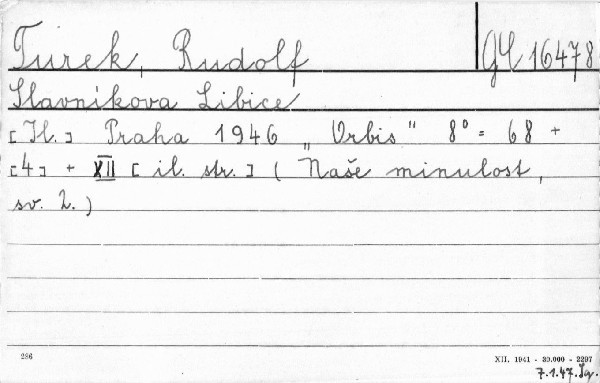 Turek, Rudolf
Slavníkova Libice
[Il.] Praha 1946 „Orbis" 8° = 68 +
[4] + XII [il. str.] (Naše minulost,
sv. 2.)
16478
286
XII. 1941 - 30.000 - 2297
7.1.47.